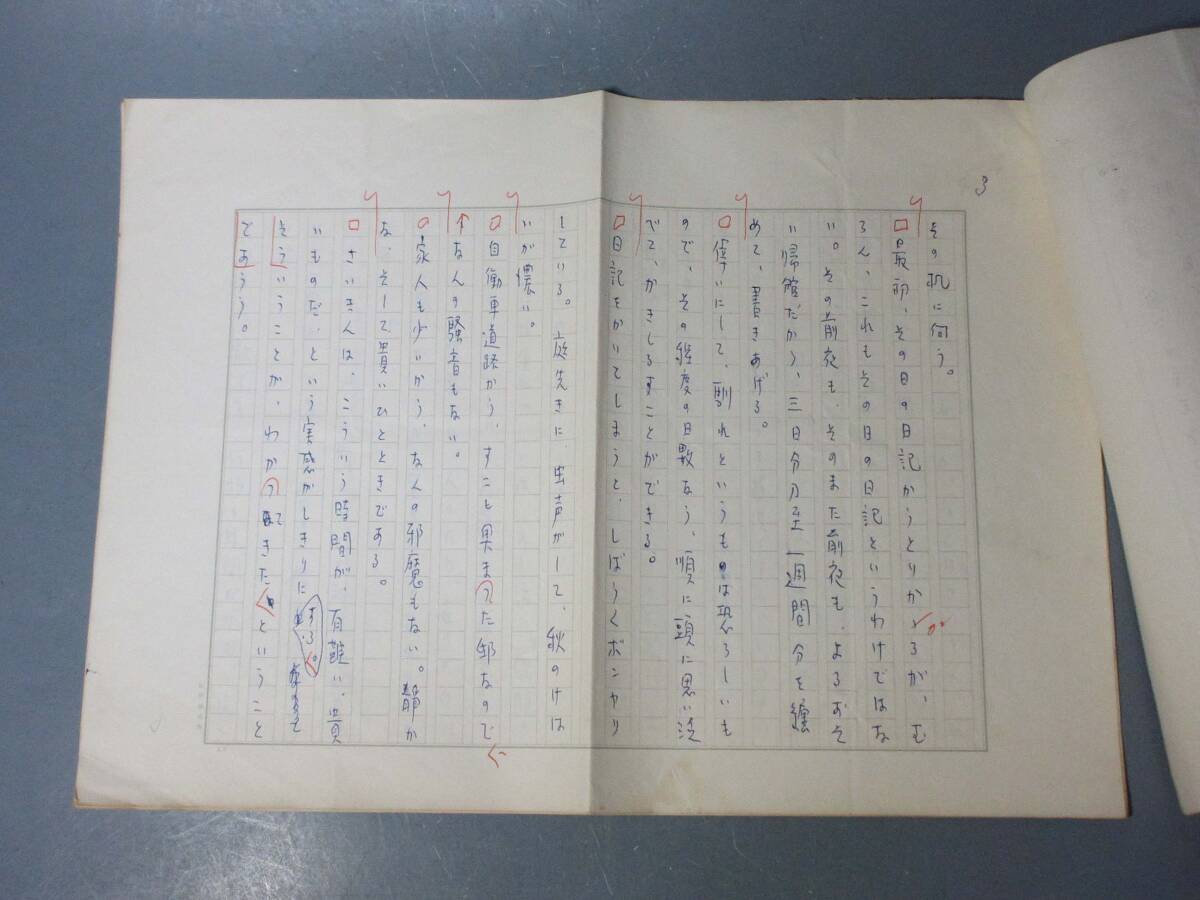 3
その机に向う。
最初、その日の日記からとりかゝるが、む
ろん、これもその日の日記というわけではな
い。その前夜も、そのまた前夜も、よるおそ
い帰館だから、三日分乃至一週間分を纏
めて、書きあげる。
倖いにして、馴れというものは恐ろしいも
ので、その程度の日数なら、順に頭に思い泛
べて、かきしるすことができる。
日記をかいてしまうと、しばらくボンヤリ
している。庭先きに、虫声がして、秋のけは
いが濃い。
自働車道路から、すこし奥まった邸なので
なんの騒音もない。
家人も少いから、なんの邪魔もない。静か
な、そして貴いひとときである。
さいきんは、こういう時間が、有難い、貴
いものだ、という実感がしきりにする。
そういうことが、わかってきたということ
であろう。